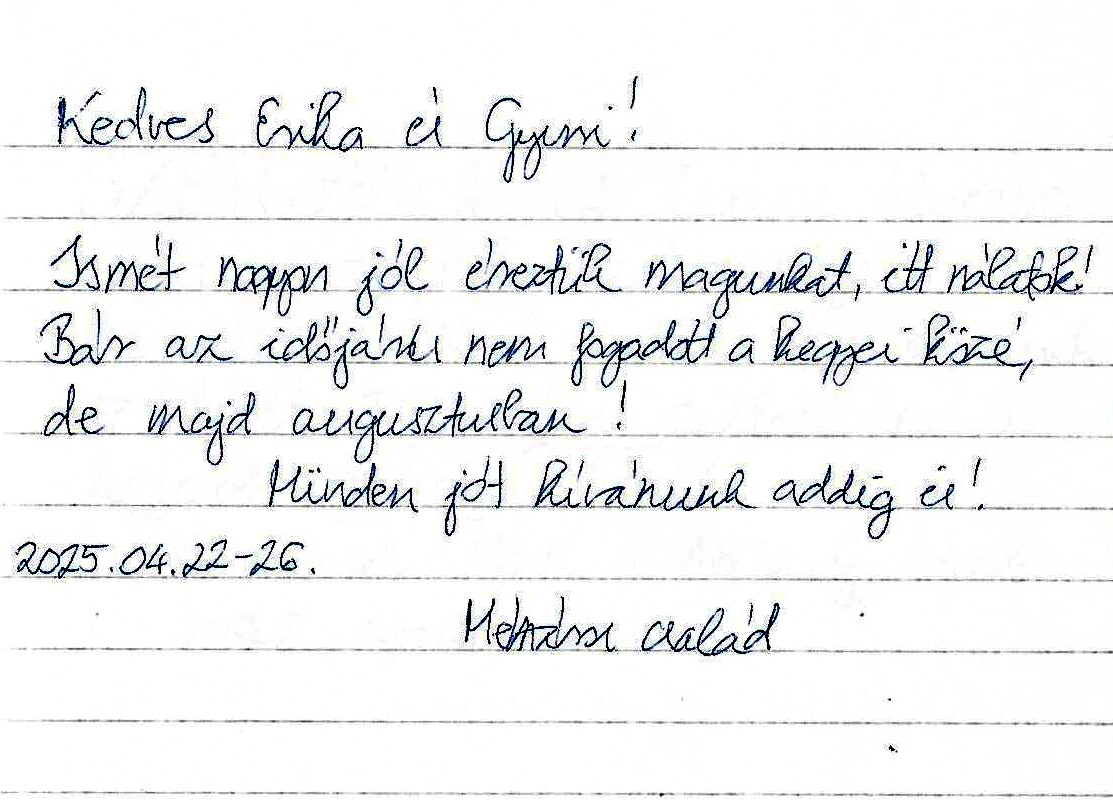 Kedves Erika és Gyuri!
Ismét nagyon jól éreztük magunkat, itt nálatok!
Bár az időjárás nem fogadott a kegyei közé,
de majd augusztusban!
Minden jót kívánunk addig is!
2025.04.22-26.
család